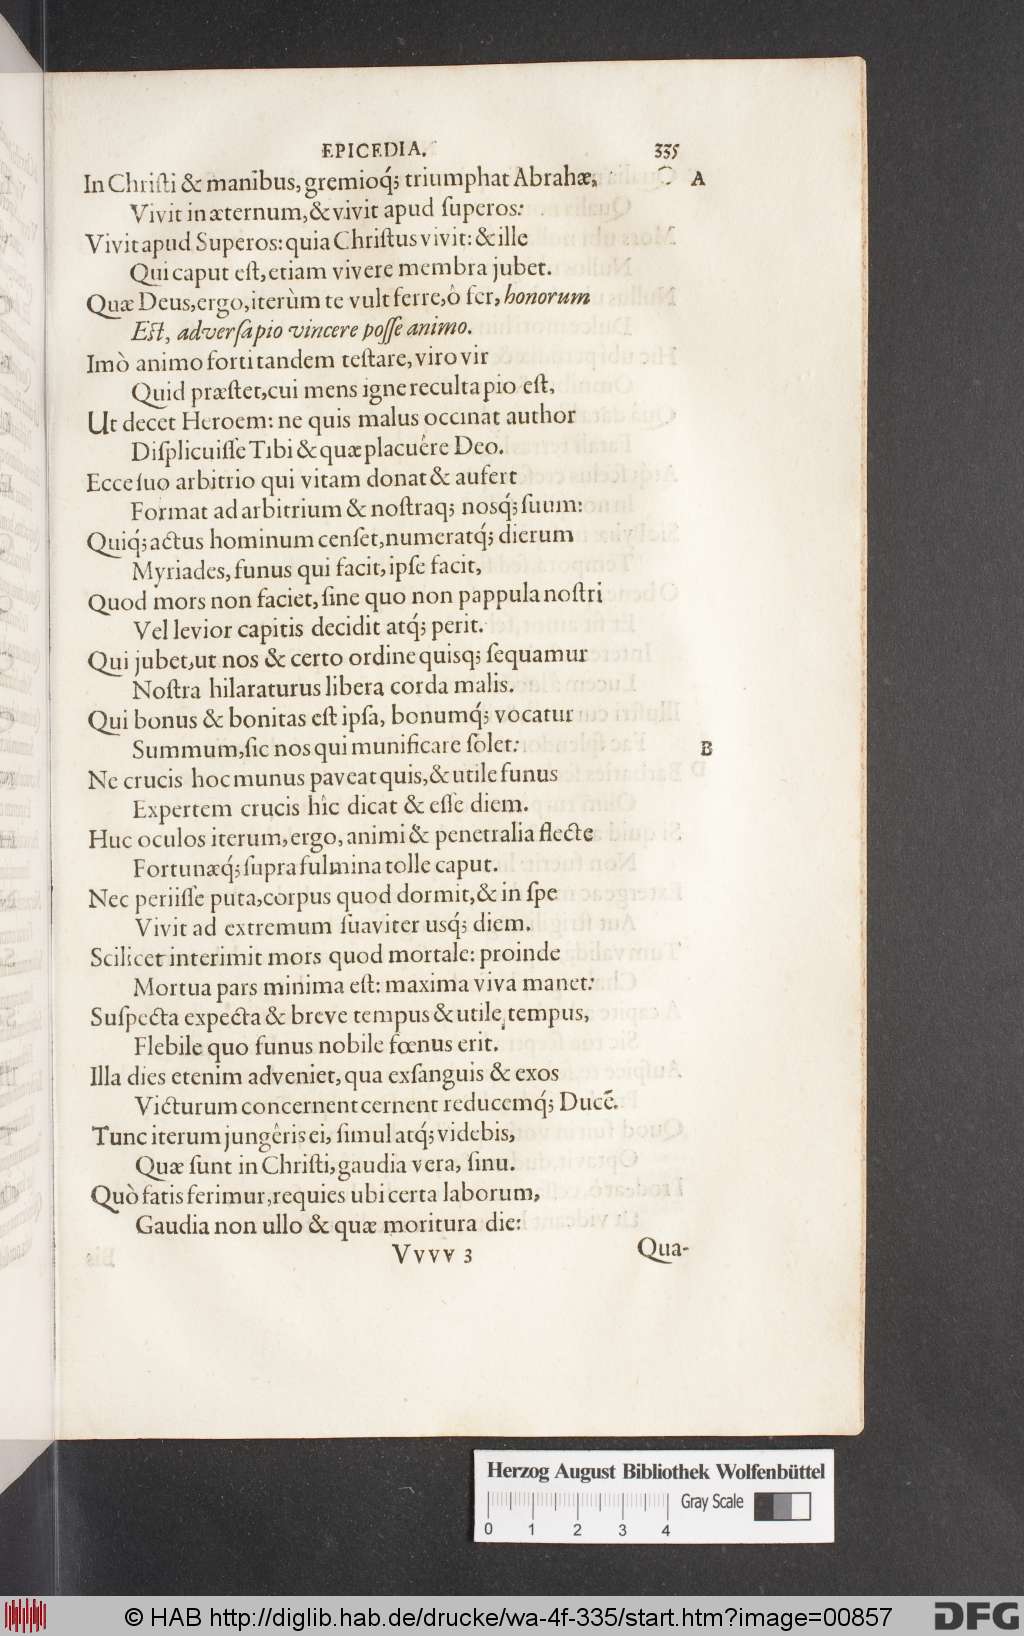 EPICEDIA. 335
In Chriſti & manibus, gremioq́; triumphat Abrahæ, A
Vivit in æternum, & vivit apud ſuperos:
Vivit apud Superos: quia Chriſtus vivit: & ille
Qui caput eſt, etiam vivere membra jubet.
Quæ Deus, ergo, iterùm te vult ferre, ô fer, honorum
Eſt, adverſa pio vincere poſſe animo.
Imò animo forti tandem teſtare, viro vir
Quid præſtet, cui mens igne reculta pio eſt,
Ut decet Heroem: ne quis malus occinat author
Diſplicuiſſe Tibi & quæ placuêre Deo.
Ecce ſuo arbitrio qui vitam donat & aufert
Format ad arbitrium & noſtraq; nosq́; ſuum:
Quiq́; actus hominum cenſet, numeratq́; dierum
Myriades, funus qui facit, ipſe facit,
Quod mors non faciet, ſine quo non pappula noſtri
Vel levior capitis decidit atq́; perit.
Qui jubet, ut nos & certo ordine quisq; ſequamur
Noſtra hilaraturus libera corda malis.
Qui bonus & bonitas eſt ipſa, bonumq́; vocatur
Summum, ſic nos qui munificare ſolet: B
Ne crucis hoc munus paveat quis, & utile funus
Expertem crucis hîc dicat & eſſe diem.
Huc oculos iterum, ergo, animi & penetralia flecte
Fortunæq́; ſupra fulmina tolle caput.
Nec periiſſe puta, corpus quod dormit, & in ſpe
Vivit ad extremum ſuaviter usq́; diem.
Scilicet interimit mors quod mortale: proinde
Mortua pars minima eſt: maxima viva manet:
Suſpecta expecta & breve tempus & utile tempus,
Flebile quo funus nobile fœnus erit.
Illa dies etenim adveniet, qua exſanguis & exos
Victurum concernent cernent reducemq́; Ducē.
Tunc iterum jungêris ei, ſimul atq́; videbis,
Quæ ſunt in Chriſti, gaudia vera, ſinu.
Quò fatis ferimur, requies ubi certa laborum,
Gaudia non ullo & quæ moritura die:
Vvvv 3 Qua-
Herzog August Bibliothek Wolfenbüttel
Gray Scale
0 1 2 3 4
© HAB http://diglib.hab.de/drucke/wa-4f-335/start.htm?image=00857 DFG